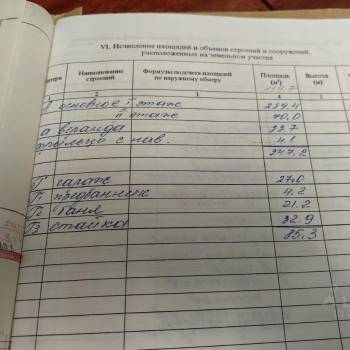 VI. Исчисление площадей и объемов строений и сооружений,
расположенных на земельном участке
Наименование строений
Формулы подсчета площадей по наружному обмеру
Площадь (м²)
Высота (м)
3 4 5
основное I этаж
II этаж 70,0
а веранда
с нав. 4.1
247,2
Г гараж 27.0
Г1 предбанник 4.2
Г2 баня 21.2
Г3 стайка 32.9
85.3